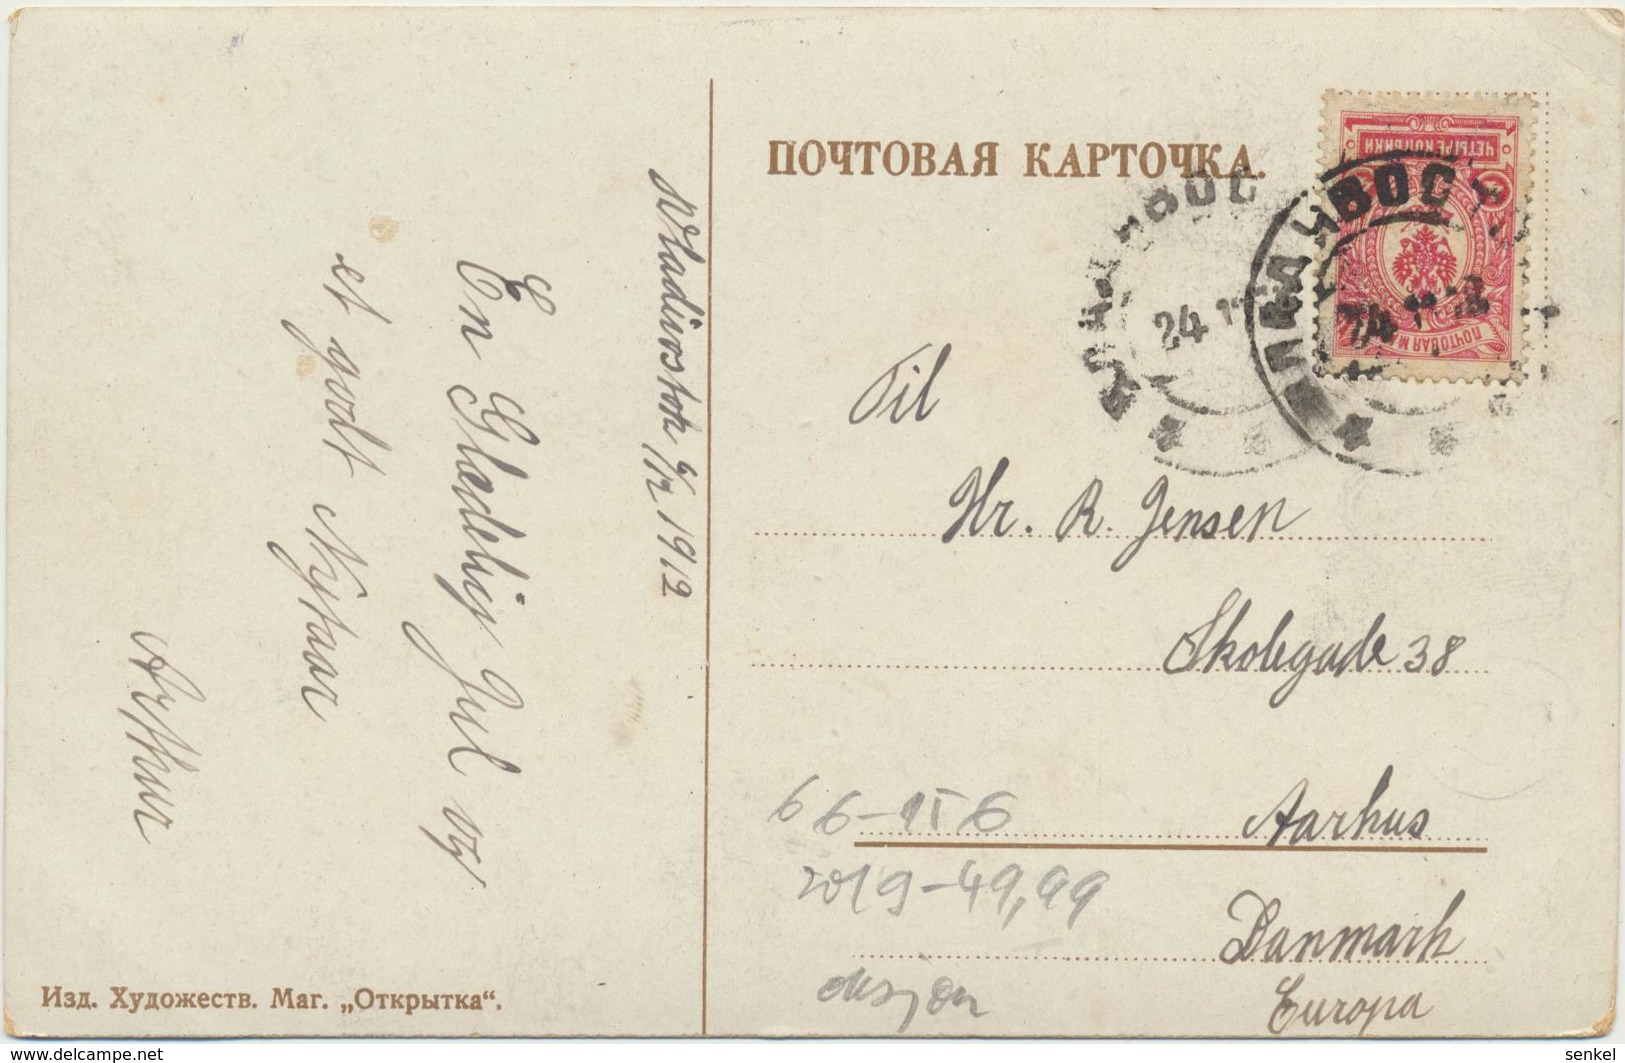 ПОЧТОВАЯ КАРТОЧКА.
ЧЕТЫРЕ КОПѢЙКИ
ПОЧТОВАЯ МАРКА
ВЛАДИВОС
24 12
ВЛАДИВОС
24 12 12
Wladivostok 6/12 1912
En Glædelig Jul og
et godt Nytaar
Arthur
Til
Hr. R. Jensen
Skolegade 38
Aarhus
Danmark
Europa
66-156
2019-49,99
oksjon
Изд. Художеств. Маг. „Открытка“.
senkel
www.delcampe.net